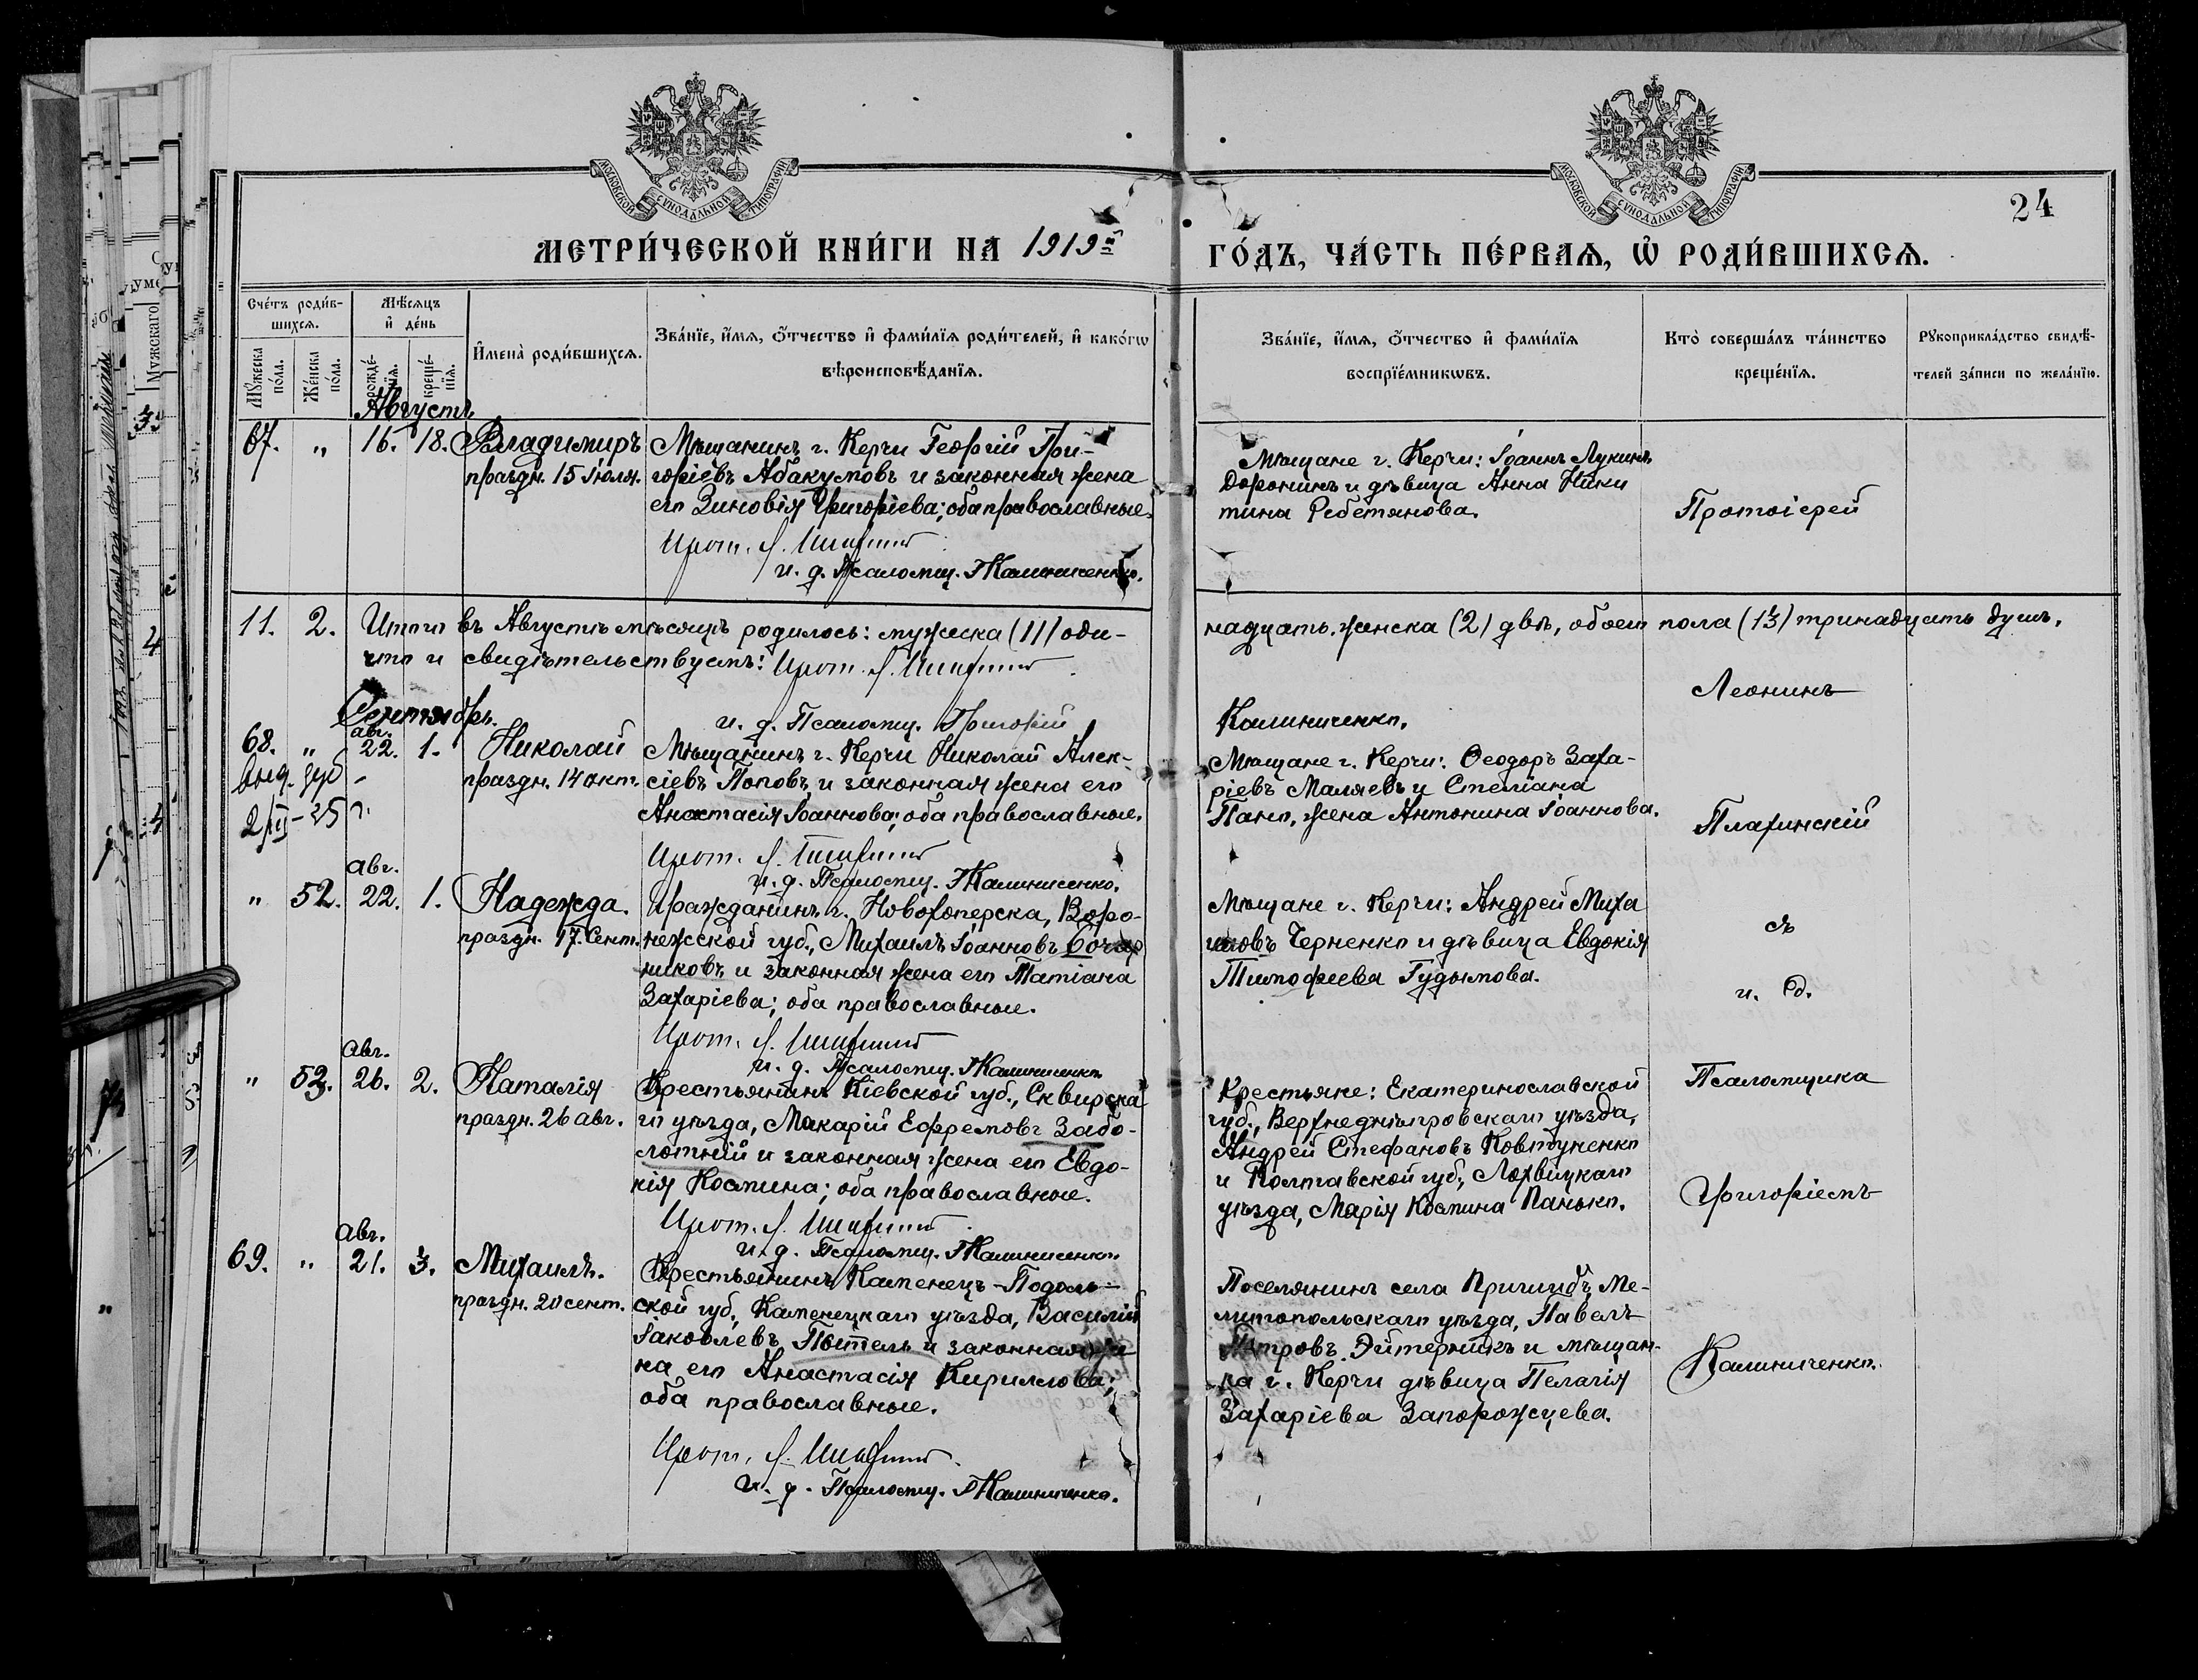 МОСКОВСКОЙ СѴНОДАЛЬНОЙ ТИПОГРАФІИ
МОСКОВСКОЙ СѴНОДАЛЬНОЙ ТИПОГРАФІИ
24
МЕТРИ́ЧЕСКОЙ КНИ́ГИ НА 1919й
ГО́ДЪ, ЧА́СТЬ ПЕ́РВАЯ, Ѡ҆ РОДИ́ВШИХСЯ.
Сче́тъ роди́в-
шихся.
Мꙋ́жеска по́ла.
Же́нска по́ла.
Мѣ́сяцъ
и҆ де́нь
рожде́-нїя.
креще́-нїя.
И҆мена̀ роди́вшихся.
Зва́нїе, и҆́мя, ѻ҆́тчество и҆ фами́лїя роди́телей, и҆ како́гѡ
вѣроисповѣ́данїя.
Зва́нїе, и҆́мя, ѻ҆́тчество и҆ фами́лїя
воспрїе́мникѡвъ.
Кто̀ соверша́лъ та́инство
креще́нїя.
Рꙋкоприкла́дство свидѣ́-
телей за́писи по жела́нїю.
Августъ
67. " 16. 18. Владимиръ
праздн. 15 Іюля.
Мѣщанинъ г. Керчи Георгій Гри-
горіевъ Абакумовъ и законная жена
его Зиновія Григоріева; оба православные.
Прот. Л.
и. д. Псаломщ. Г Калиниченко.
Мѣщане г. Керчи: Іоаннъ Лукинъ
Доронинъ и дѣвица Анна Ники
тина Ребетянова.
Протоіерей
11. 2. Итого въ Августѣ мѣсяцѣ родилось: мужеска (11) оди-
надцать. женска (2) двѣ, обоего пола (13) тринадцать душъ,
что и свидѣтельствуемъ: Прот. Л.
Леонинъ
и. д. Псаломщ. Григорій
Калиниченко.
Сентябрь.
авг.
68. " 22. 1. Николай
праздн. 14 окт.
выд.
2/III-25 г.
Мѣщанинъ г. Керчи Николай Алек-
сіевъ Поповъ и законная жена его
Анастасія Іоаннова; оба православные.
Прот. Л.
и. д. Псаломщ. Г Калиниченко.
Мѣщане г. Керчи: Ѳеодоръ Заха-
ріевъ Маляевъ и Стеліана
Папо, жена Антонина Іоаннова.
Плахинскій
авг.
" 52. 22. 1. Надежда.
праздн. 17. Сент.
Гражданинъ г. Новохоперска, Воро-
нежской губ., Михаилъ Іоанновъ Бочар
никовъ и законная жена его Татіана
Захаріева; оба православные.
Прот. Л.
и. д. Псаломщ. Г Калиниченко
Мѣщане г. Керчи: Андрей Миха
иловъ Черненко и дѣвица Евдокія
Тимофеева Гудымова.
съ
и. д.
авг.
" 53. 26. 2. Наталія
праздн. 26 авг.
Крестьянинъ Кіевской губ., Сквирска
го уѣзда, Макарій Ефремовъ Забо-
лотній и законная жена его Евдо-
кія Космина; оба православные.
Прот. Л.
и. д. Псаломщ. Г Калиниченко.
Крестьяне: Екатеринославской
губ., Верхнеднѣпровскаго уѣзда,
Андрей Стефановъ Ковтуненко
и Полтавской губ., Лохвицкаго
уѣзда, Марія Космина Панько.
Псаломщика
Григоріемъ
авг.
69. " 21. 3. Михаилъ.
праздн. 20 сент.
Крестьянинъ Каменецъ-Подоль-
ской губ., Каменецкаго уѣзда, Василій
Іаковлевъ Постель и законная же
на его Анастасія Кириллова;
оба православные.
Прот. Л.
и. д. Псаломщ. Г Калиниченко.
Поселянинъ села Пришибъ, Ме-
литопольскаго уѣзда, Павелъ
Петровъ Эйтерникъ и мѣщан-
ка г. Керчи дѣвица Пелагія
Захаріева Запорожцева.
Калиниченко.